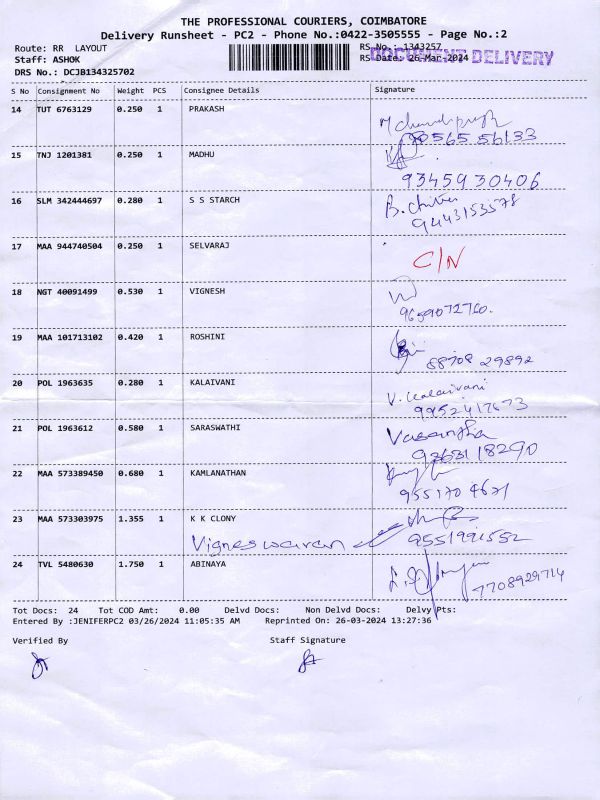 THE PROFESSIONAL COURIERS, COIMBATORE
Delivery Runsheet - PC2 - Phone No.:0422-3505555 - Page No.:2
Route: RR LAYOUT RS No.: 1343257
Staff: ASHOK RS Date: 26-Mar-2024
DOCUMENT DELIVERY
DRS No.: DCJB134325702
S No Consignment No Weight PCS Consignee Details Signature
14 TUT 6763129 0.250 1 PRAKASH
90565 56133
15 TNJ 1201381 0.250 1 MADHU
93459 30406
16 SLM 342444697 0.280 1 S S STARCH
9443153578
17 MAA 944740504 0.250 1 SELVARAJ
C/N
18 NGT 40091499 0.530 1 VIGNESH
9659072760.
19 MAA 101713102 0.420 1 ROSHINI
88708 29892
20 POL 1963635 0.280 1 KALAIVANI V. Kalaivani
9952417673
21 POL 1963612 0.580 1 SARASWATHI
9363118290
22 MAA 573389450 0.680 1 KAMLANATHAN
955170 4671
23 MAA 573303975 1.355 1 K K CLONY
Vigneswaran 9551991552
24 TVL 5480630 1.750 1 ABINAYA
7708929714
Tot Docs: 24 Tot COD Amt: 0.00 Delvd Docs: Non Delvd Docs: Delvy Pts:
Entered By :JENIFERPC2 03/26/2024 11:05:35 AM Reprinted On: 26-03-2024 13:27:36
Verified By Staff Signature